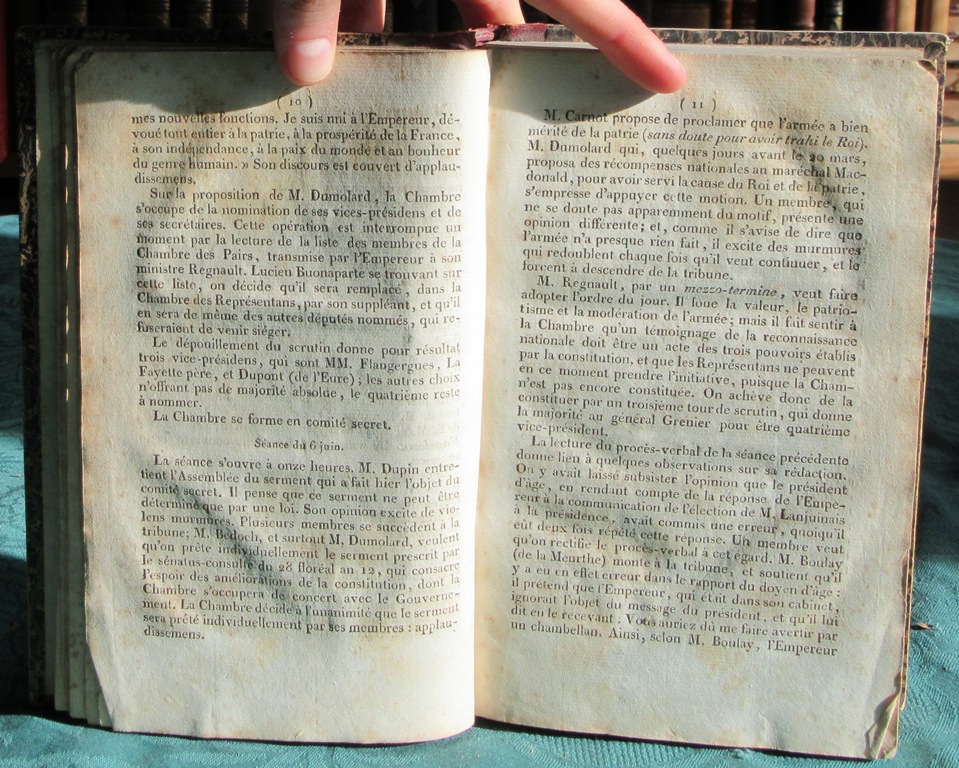 ( 10 )
mes nouvelles fonctions. Je suis uni à l'Empereur, dé-
voué tout entier à la patrie, à la prospérité de la France,
à son indépendance, à la paix du monde et au bonheur
du genre humain. » Son discours est couvert d'applau-
dissemens.
Sur la proposition de M. Dumolard, la Chambre
s'occupe de la nomination de ses vices-présidens et de
ses secrétaires. Cette opération est interrompue un
moment par la lecture de la liste des membres de la
Chambre des Pairs, transmise par l'Empereur à son
ministre Regnault. Lucien Buonaparte se trouvant sur
cette liste, on décide qu'il sera remplacé, dans la
Chambre des Représentans, par son suppléant, et qu'il
en sera de même des autres députés nommés, qui re-
fuseraient de venir siéger.
Le dépouillement du scrutin donne pour résultat
trois vice-présidens, qui sont MM. Flaugergues, La
Fayette père, et Dupont (de l'Eure) ; les autres choix
n'offrant pas de majorité absolue, le quatrième reste
à nommer.
La Chambre se forme en comité secret.
Séance du 6 juin.
La séance s'ouvre à onze heures. M. Dupin entre-
tient l'Assemblée du serment qui a fait hier l'objet du
comité secret. Il pense que ce serment ne peut être
déterminé que par une loi. Son opinion excite de vio-
lens murmures. Plusieurs membres se succèdent à la
tribune; M. Bedoch, et surtout M. Dumolard, veulent
qu'on prête individuellement le serment prescrit par
le sénatus-consulte du 28 floréal an 12, qui consacre
l'espoir des améliorations de la constitution, dont la
Chambre s'occupera de concert avec le Gouverne-
ment. La Chambre décide à l'unanimité que le serment
sera prêté individuellement par ses membres : applau-
dissemens.
( 11 )
M. Carnot propose de proclamer que l'armée a bien
mérité de la patrie (sans doute pour avoir trahi le Roi).
M. Dumolard qui, quelques jours avant le 20 mars,
proposa des récompenses nationales au maréchal Mac-
donald, pour avoir servi la cause du Roi et de la patrie,
s'empresse d'appuyer cette motion. Un membre, qui
ne se doute pas apparemment du motif, présente une
opinion différente; et, comme il s'avise de dire que
l'armée n'a presque rien fait, il excite des murmures
qui redoublent chaque fois qu'il veut continuer, et le
forcent à descendre de la tribune.
M. Regnault, par un mezzo-termine, veut faire
adopter l'ordre du jour. Il loue la valeur, le patrio-
tisme et la modération de l'armée; mais il fait sentir à
la Chambre qu'un témoignage de la reconnaissance
nationale doit être un acte des trois pouvoirs établis
par la constitution, et que les Représentans ne peuvent
en ce moment prendre l'initiative, puisque la Cham-
n'est pas encore constituée. On achève donc de la
constituer par un troisième tour de scrutin, qui donne
la majorité au général Grenier pour être quatrième
vice-président.
La lecture du procès-verbal de la séance précédente
donne lieu à quelques observations sur sa rédaction.
On y avait laissé subsister l'opinion que le président
d'âge, en rendant compte de la réponse de l'Empe-
reur à la communication de l'élection de M. Lanjuinais
à la présidence, avait commis une erreur, quoiqu'il
eût deux fois répété cette réponse. Un membre veut
qu'on rectifie le procès-verbal à cet égard. M. Boulay
(de la Meurthe) monte à la tribune, et soutient qu'il
y a eu en effet erreur dans le rapport du doyen d'âge :
il prétend que l'Empereur, qui était dans son cabinet,
ignorait l'objet du message du président, et qu'il lui
dit en le recevant : Vous auriez dû me faire avertir par
un chambellan. Ainsi, selon M. Boulay, l'Empereur